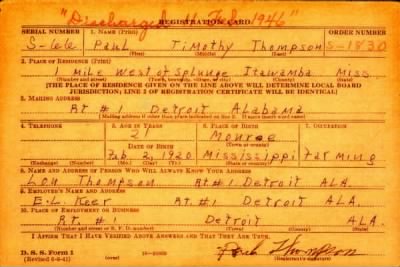 "Discharged Feb 1946"
REGISTRATION CARD
SERIAL NUMBER 1. NAME (Print) ORDER NUMBER
Paul Timothy Thompson S-1830
(First) (Middle) (Last)
2. PLACE OF RESIDENCE (Print)
1 mile West of Splunge Itawamba Miss.
(Number and street) (Town, township, village, or city) (County) (State)
[THE PLACE OF RESIDENCE GIVEN ON THE LINE ABOVE WILL DETERMINE LOCAL BOARD
JURISDICTION; LINE 2 OF REGISTRATION CERTIFICATE WILL BE IDENTICAL]
3. MAILING ADDRESS
Rt # 1 Detroit Alabama
[Mailing address if other than place indicated on line 2. If same insert word same]
4. TELEPHONE 5. AGE IN YEARS 6. PLACE OF BIRTH 7. OCCUPATION
21 Monroe
DATE OF BIRTH (Town or county)
Feb 2, 1920 Mississippi Farming
(Exchange) (Number) (Mo.) (Day) (Yr.) (State or country)
8. NAME AND ADDRESS OF PERSON WHO WILL ALWAYS KNOW YOUR ADDRESS
Lon Thompson Rt # 1 Detroit ALA.
9. EMPLOYER'S NAME AND ADDRESS
E.L. Keer Rt # 1 Detroit ALA.
10. PLACE OF EMPLOYMENT OR BUSINESS
Rt. # 1 Detroit ALA.
(Number and street or R. F. D. number) (Town) (County) (State)
I AFFIRM THAT I HAVE VERIFIED ABOVE ANSWERS AND THAT THEY ARE TRUE.
D. S. S. Form 1 Paul Thompson
(Revised 6-9-41) (Registrant's signature)